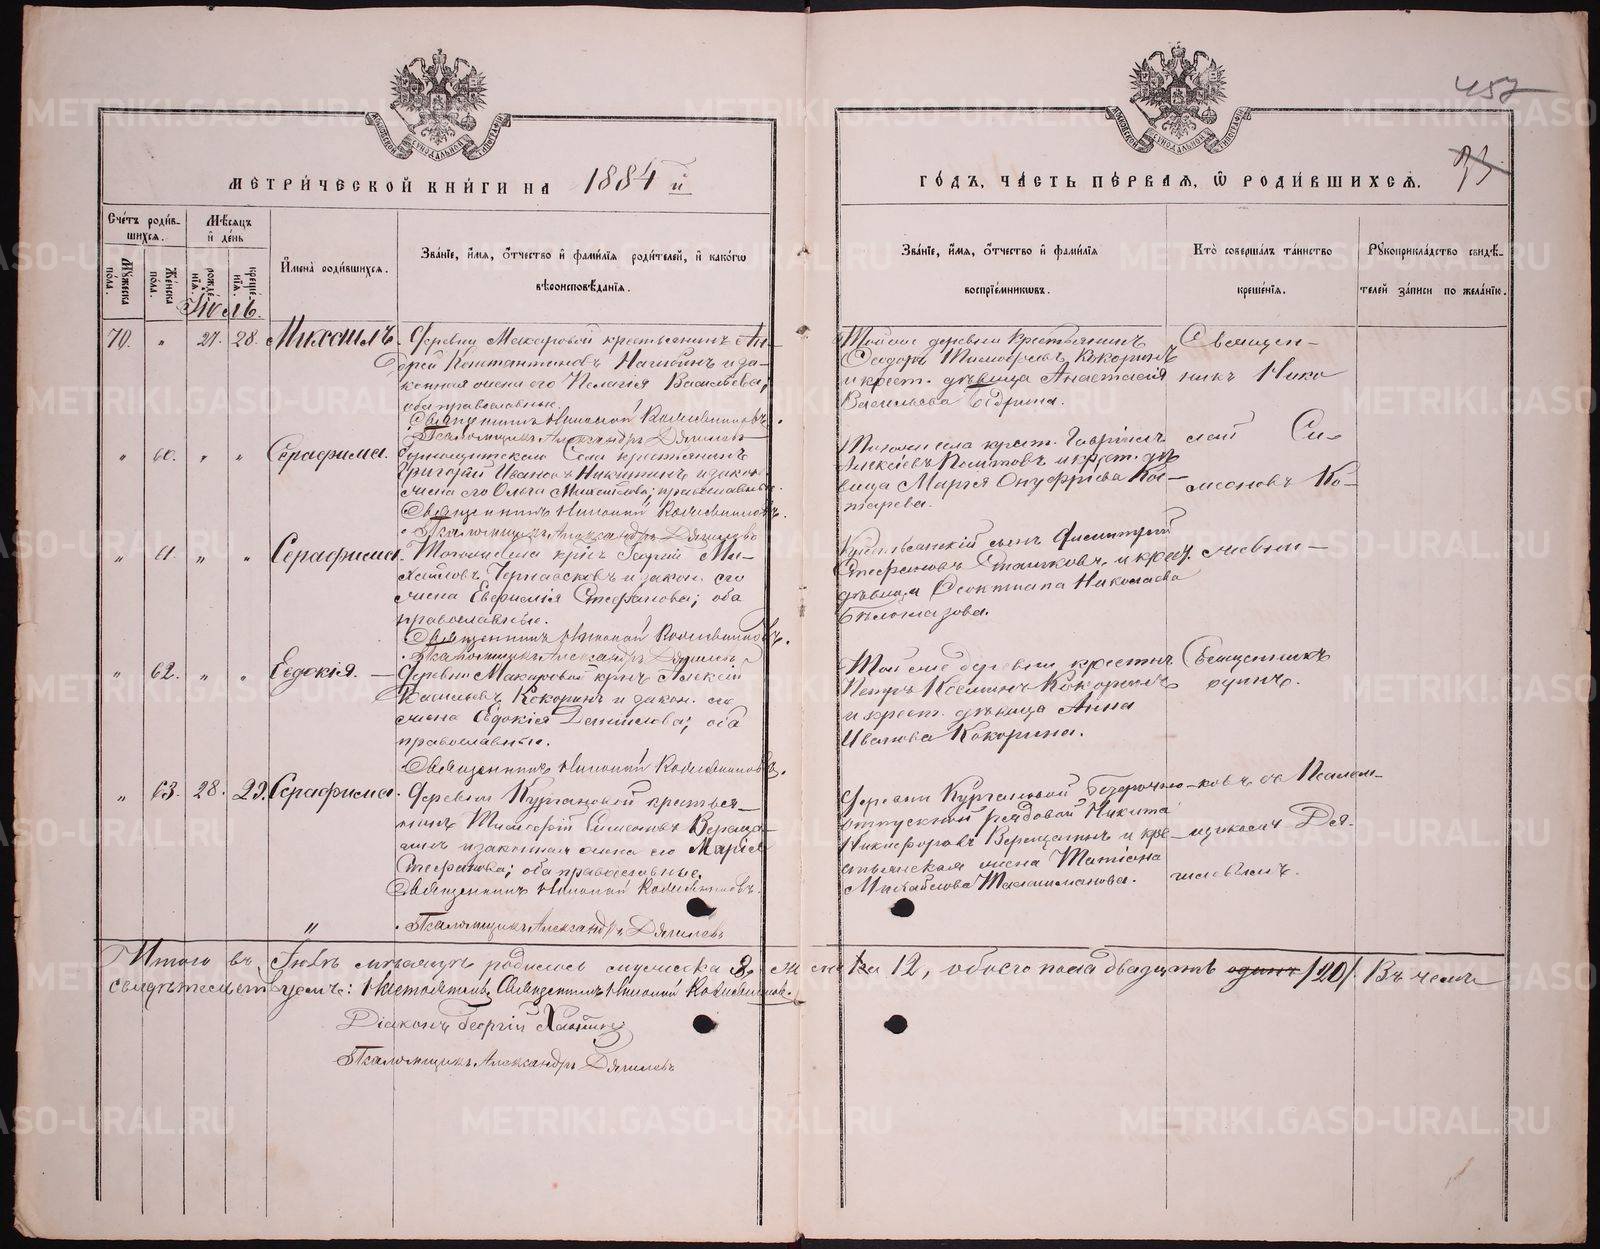 457
93
МЕТРИ́ЧЕСКОЙ КНИ́ГИ НА 1884 й
ГО́ДЪ, ЧА́СТЬ ПЕ́РВАЯ, Ѡ҆ РОДИ́ВШИХСЯ.
Сче́тъ роди́в-
шихся.
Мѣ́сяцъ
и҆ де́нь
Му́жеска по́ла.
Же́нска по́ла.
рожде́нїя.
креще́нїя.
И҆мена̀ роди́вшихся.
Зва́нїе, и҆́мя, ѻ҆́тчество и҆ фами́лїя роди́телей, и҆ како́гѡ
вѣроисповѣ́данїя.
Зва́нїе, и҆́мя, ѻ҆́тчество и҆ фами́лїя
воспрїе́мникѡвъ.
Кто̀ соверша́лъ та́инство
креще́нїя.
Рꙋкоприкла́дство свидѣ́-
телей за́писи по жела́нїю.
Іюль.
70. " 27. 28. Михаилъ.
Деревни Макаровой крестьянинъ Ан-
дрей Константиновъ Нагибинъ и за-
конная жена его Пелагія Васильева,
оба православные.
Священникъ Николай
Псаломщикъ Александръ Дягилевъ
Той же деревни крестьянинъ
Ѳеодоръ Тимоѳеевъ Кокоринъ
и крест. дѣвица Анастасія
Васильева
Священ-
никъ Нико
" 60. " " Серафима.
Села крестьянинъ
Григорій Ивановъ Никитинъ и закон.
жена его Ольга Михайлова; православные.
Священникъ Николай
Псаломщикъ Александръ Дягилевъ
Того же села крест. Гавріилъ
Алексѣевъ и крест. дѣ-
вица Марія Онуфріева Ко-
тарева.
лай Си-
меоновъ Ко-
" 61. " " Серафима.
Того же села крест. Георгій Ми-
хайловъ Чернавсковъ и закон. его
жена Стефанова; оба
православные.
Священникъ Николай
Псаломщикъ Александръ Дягилевъ
Крестьянскій сынъ Димитрій
Стефановъ и крест.
дѣвица Николаева
Бѣлоглазова.
" 62. " " Евдокія.
Деревни Макаровой крест. Алексій
Васильевъ Кокоринъ и закон. его
жена Евдокія Данилова; оба
православные.
Священникъ Николай
Той же деревни крестьян.
Петръ Косминъ Кокоринъ
и крест. дѣвица Анна
Иванова Кокорина.
" 63. 28. 29. Серафима.
Деревни Кургановой крестья-
нинъ Тимофій Симеоновъ Вереща-
гинъ и законная жена его Марія
Стефанова; оба православные.
Священникъ Николай
" Псаломщикъ Александръ Дягилевъ
Деревни Кургановой безсрочно-
отпускной рядовой Никита
Никифоровъ Верещагинъ и кре-
стьянская жена Татіана
Михайлова
ковъ съ Псалом-
щикомъ Дя-
гилевымъ.
Итого въ Іюлѣ мѣсяцѣ родилось мужеска 8, женска 12, обоего пола двадцать одинъ /20/. Въ чемъ
свидѣтельствуемъ: Настоятель Священникъ Николай
Діаконъ Георгій
Псаломщикъ Александръ Дягилевъ
METRIKI.GASO-URAL.RU